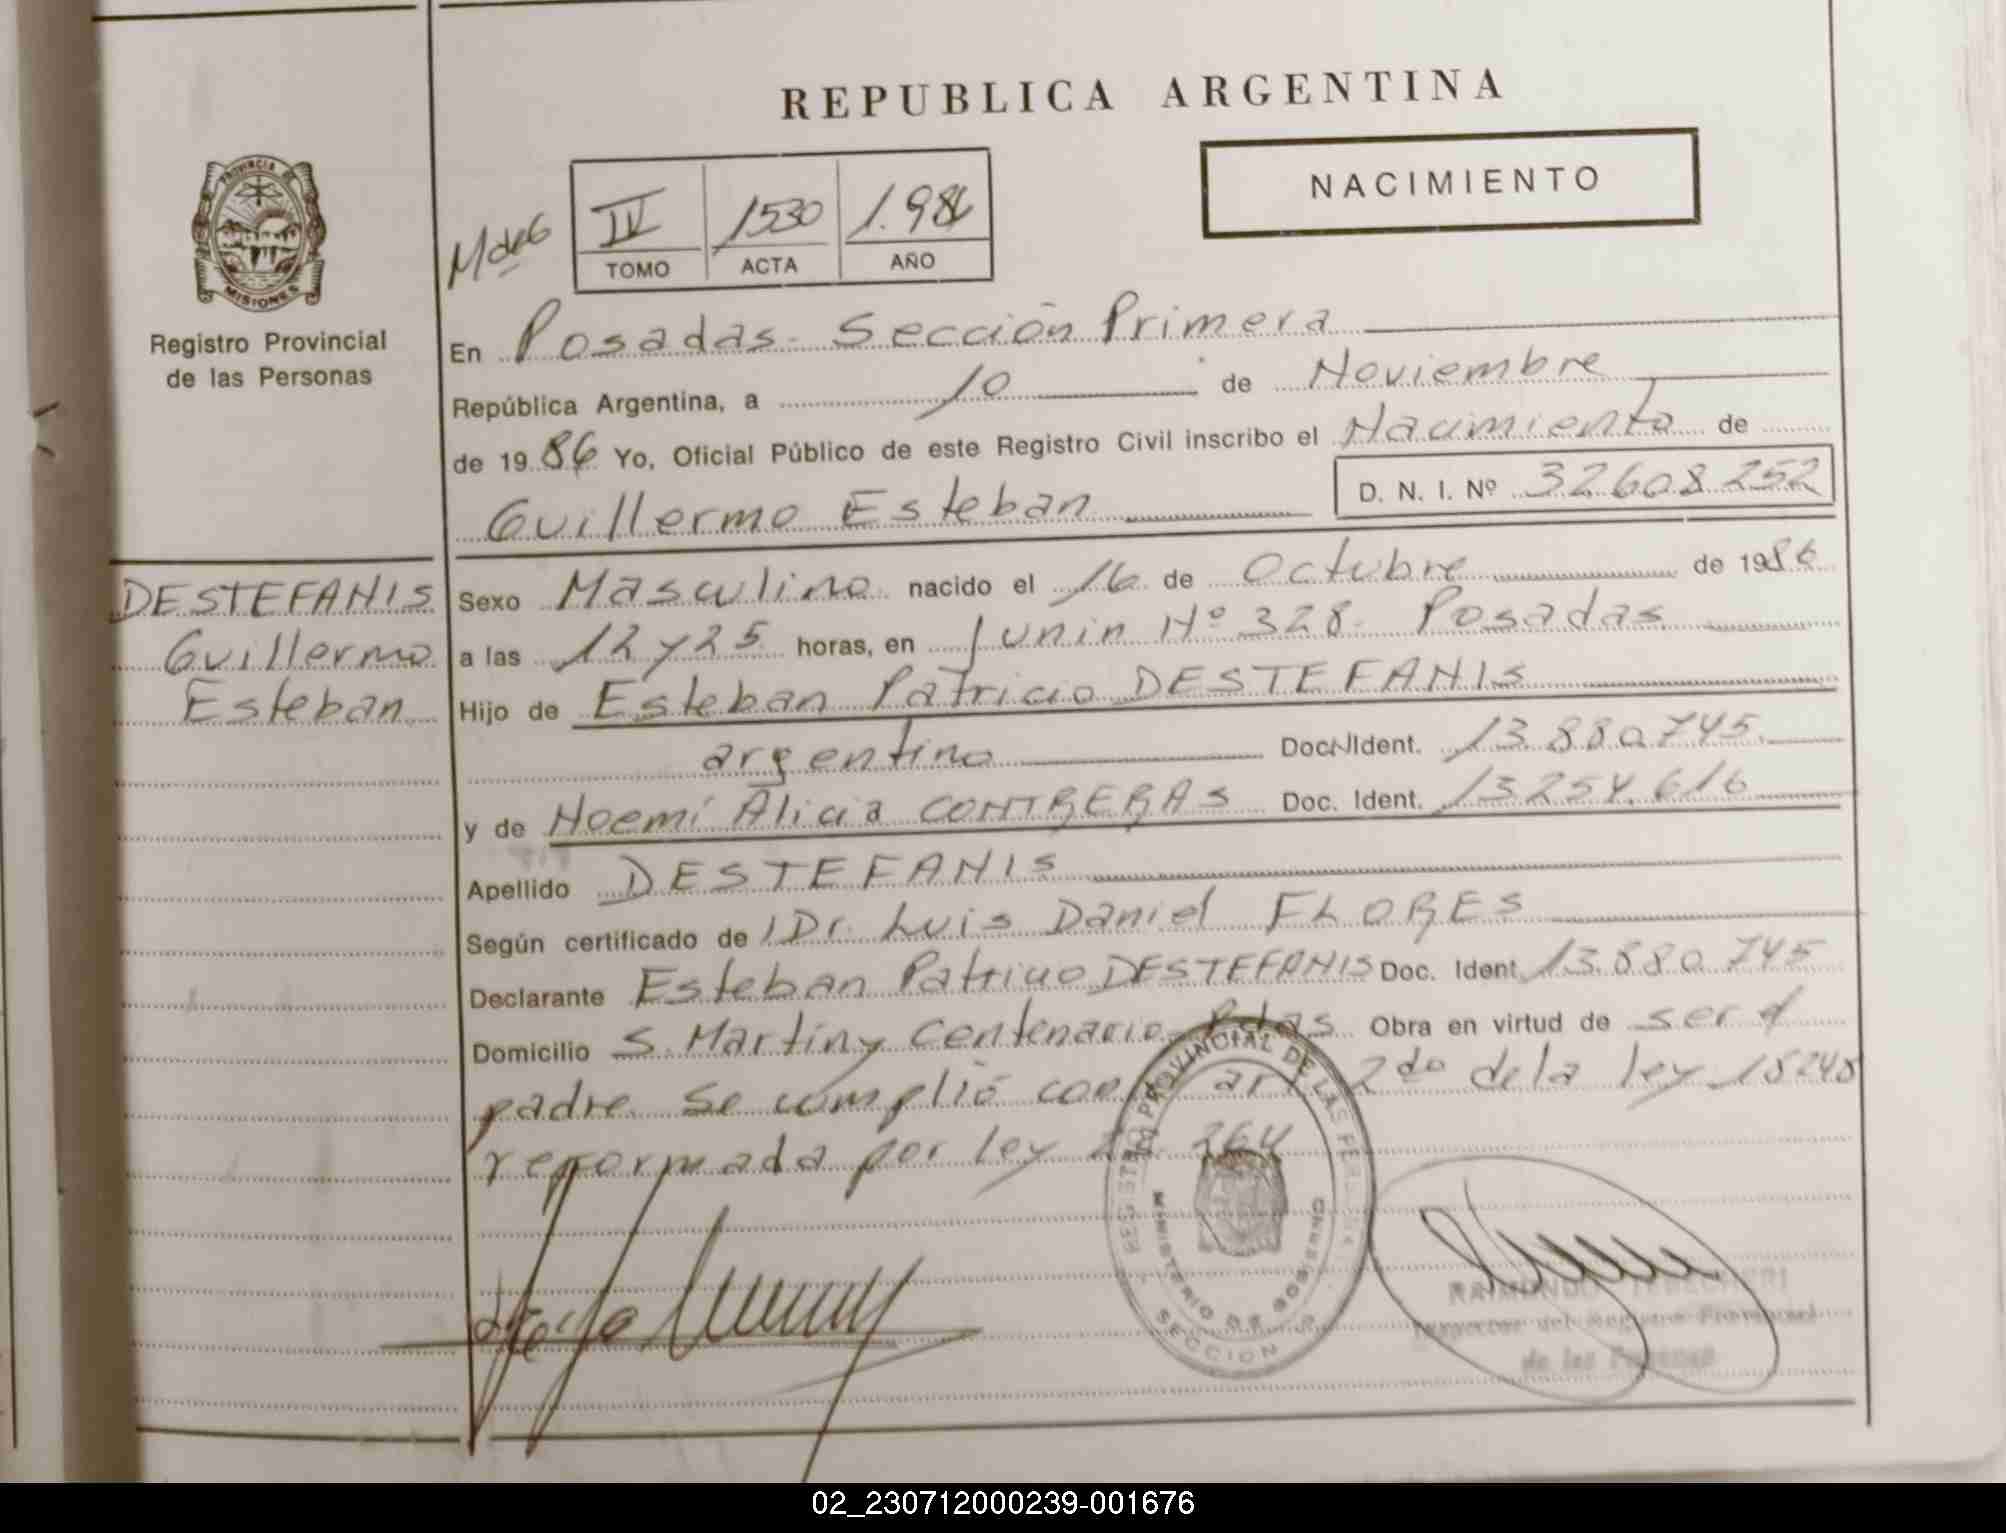 REPUBLICA ARGENTINA
NACIMIENTO
PROVINCIA DE
MISIONES
Registro Provincial
de las Personas
IV 1530 1.986
TOMO ACTA AÑO
En Posadas- Sección Primera
República Argentina, a 10 de Noviembre
de 1986 Yo, Oficial Público de este Registro Civil inscribo el Nacimiento de
Guillermo Esteban D. N. I. Nº 32608252
DESTEFANIS
Guillermo
Esteban
Sexo Masculino nacido el 16 de Octubre de 1986
a las 12 y 25 horas, en Junin Nº 328. Posadas
Hijo de Esteban Patricio DESTEFANIS
argentino Doc. Ident. 13.880.745
y de Noemí Alicia CONTRERAS Doc. Ident. 13.254.616
Apellido DESTEFANIS
Según certificado de Dr. Luis Daniel FLORES
Declarante Esteban Patricio DESTEFANIS Doc. Ident. 13.880.745
Domicilio S. Martin y Centenario- Pdas Obra en virtud de ser el
padre. Se cumplió con art 2do de la ley 18248
reformada por ley 264
REGISTRO PROVINCIAL DE LAS PERSONAS
MINISTERIO DE GOBIERNO
SECCION
RAIMUNDO
Inspector del Registro Provincial
de las Personas
02_230712000239-001676